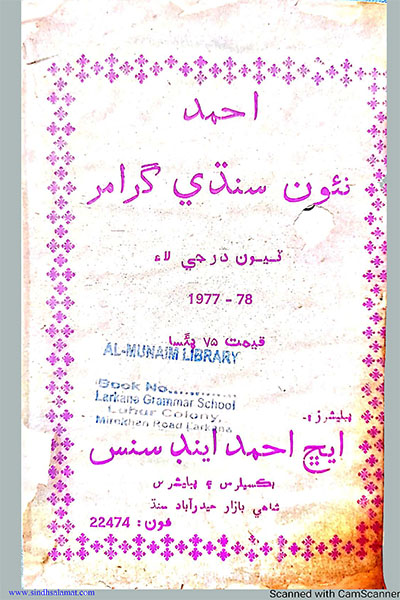 احمد
نئون سنڌي گرامر
ٽيون درجي لاءِ
1977 - 78
قيمت ۷۵ پئسا
AL-MUNAIM LIBRARY
Book No...............
Larkana Grammar School
Lahar Colony,
Mirokhan Road Larkana
پبليشرز :-
ايڇ احمد اينڊ سنس
بڪسيلرس ۽ پبليشرس
شاهي بازار حيدرآباد سنڌ
فون: 22474
www.sindhsalamat.com
Scanned with CamScanner